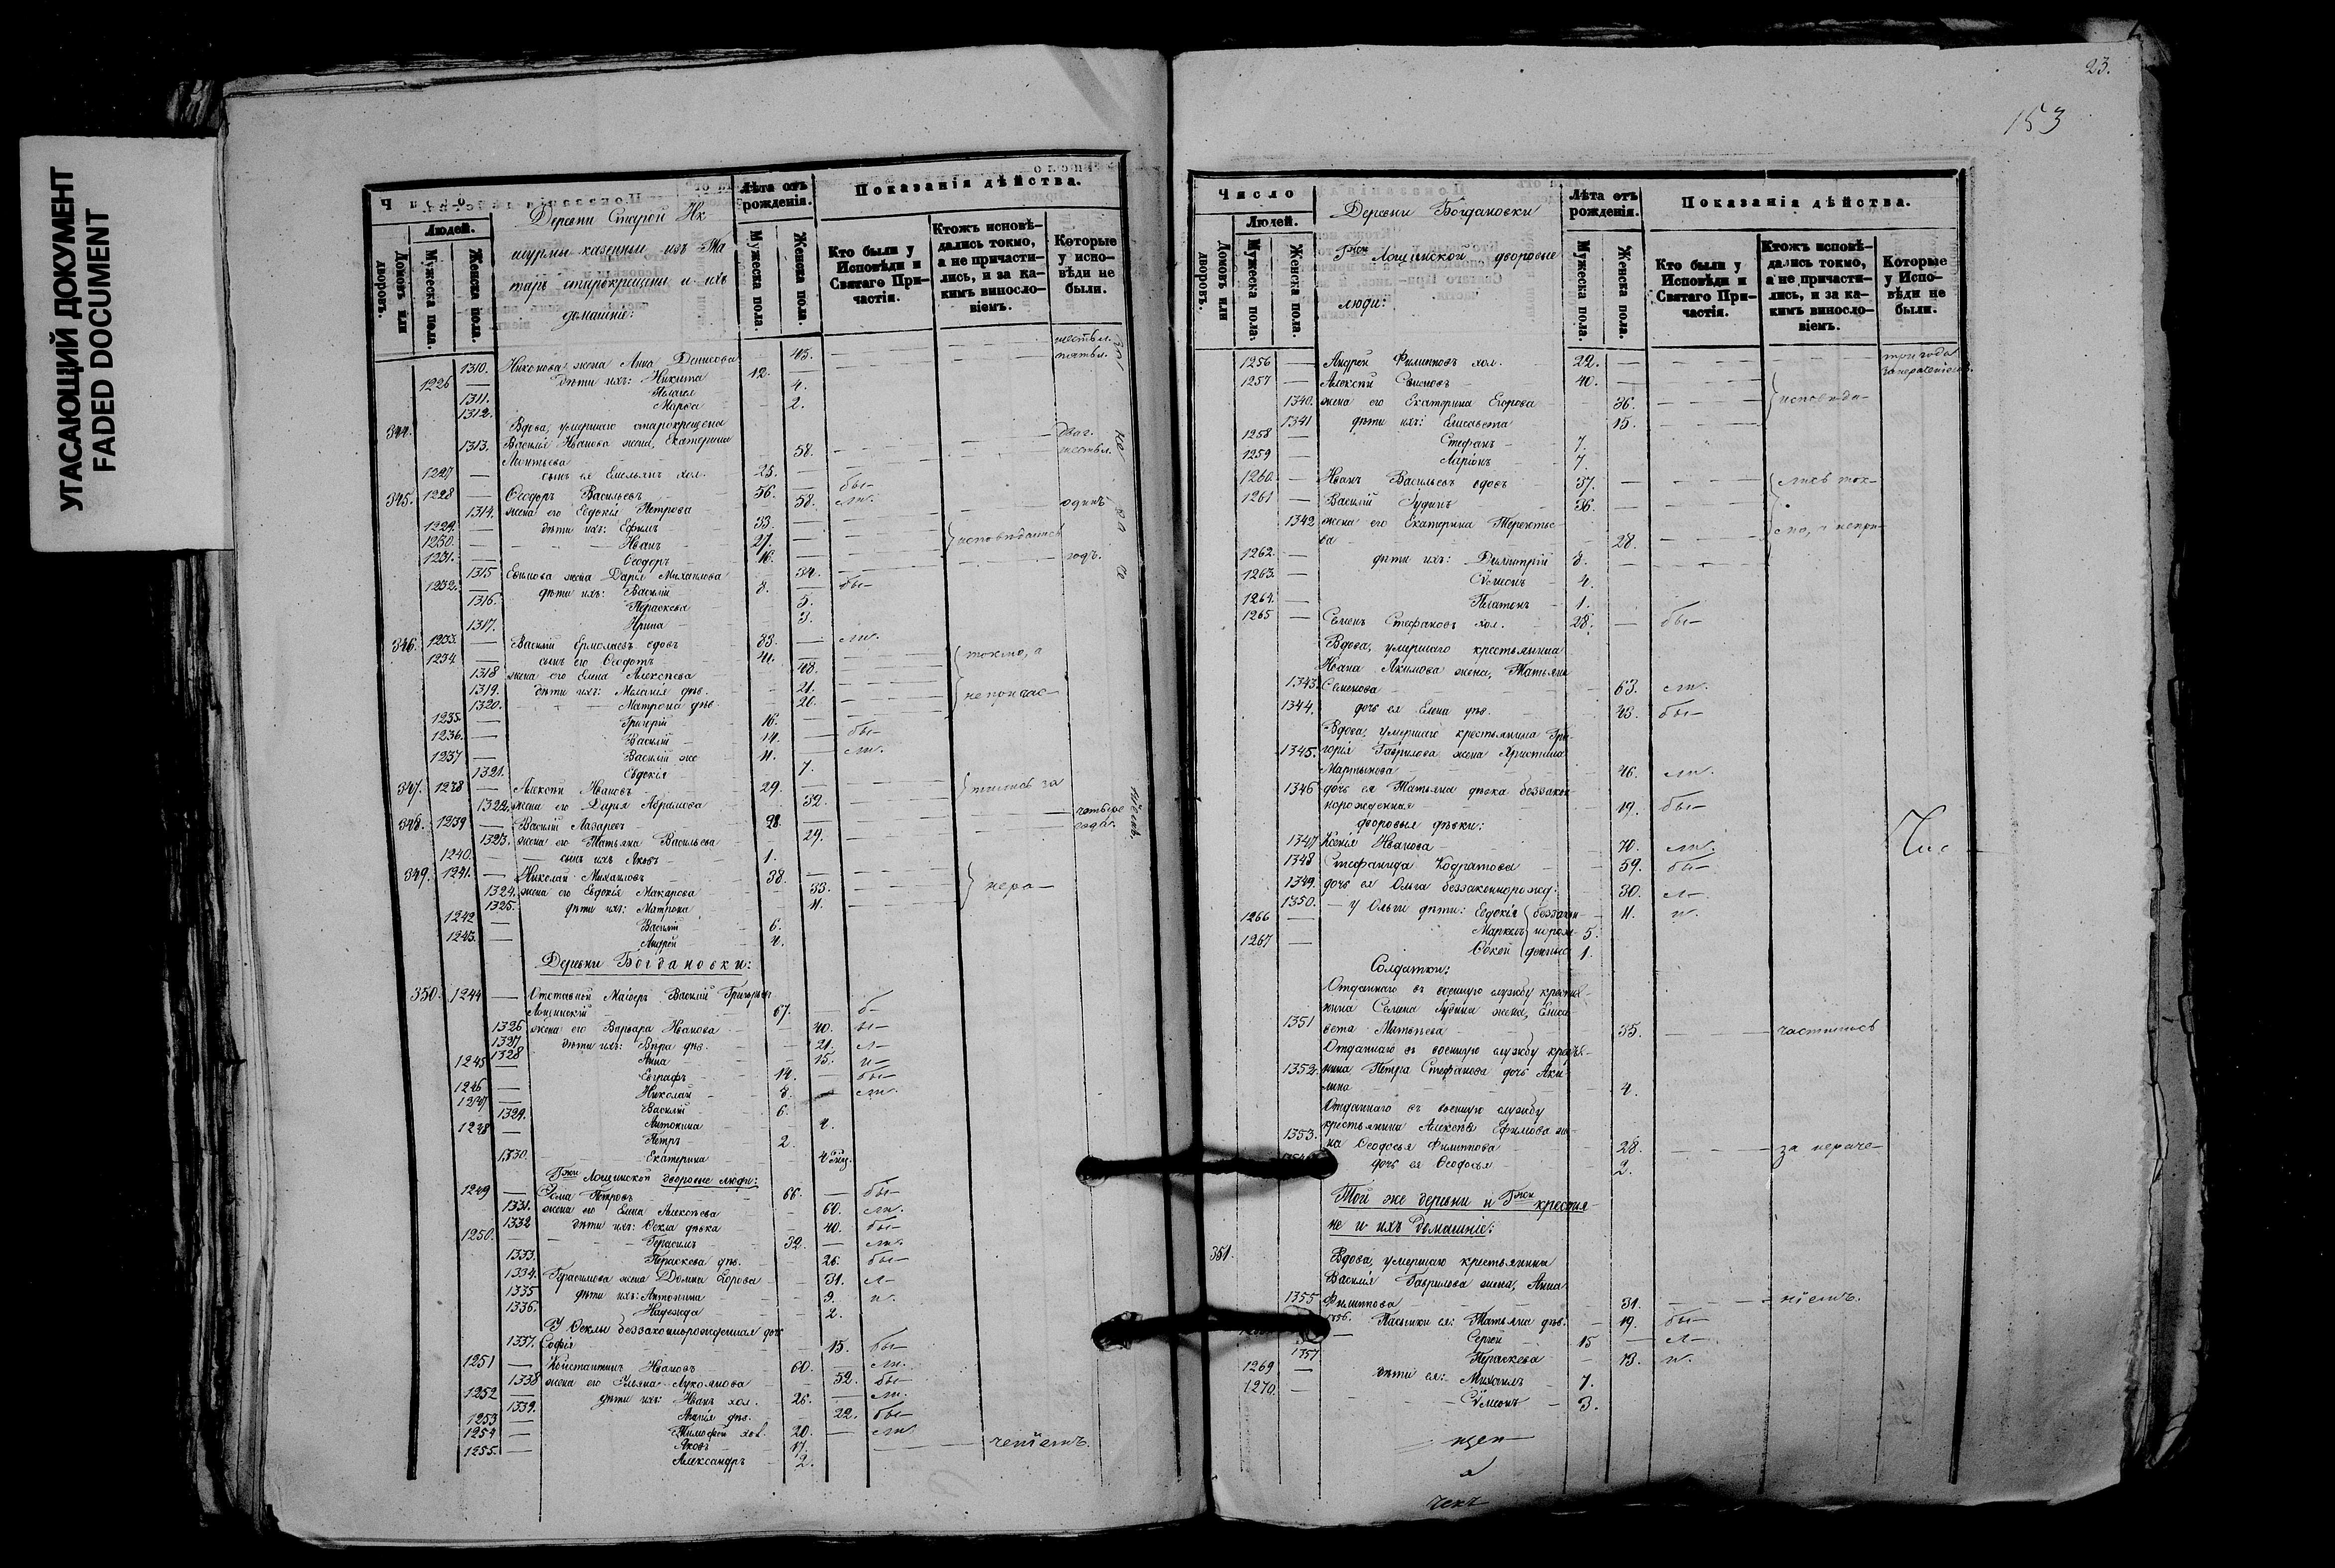 УГАСАЮЩИЙ ДОКУМЕНТ
FADED DOCUMENT
Деревни Старой Ик
шурмы казенныи изъ Та
таръ старокрещены и ихъ
домашніе:
Лѣта отъ
рожденія.
Показанія дѣйства.
Людей.
Домовъ или
дворовъ.
Мужеска пола.
Женска пола.
Мужеска пола.
Женска пола.
Кто были у
Исповѣди и
Святаго При-
частія.
Ктожъ исповѣ-
дались токмо,
а не причасти-
лись, и за ка-
кимъ винослo-
віемъ.
Которые
у испо-
вѣди не
были.
1310. Никонова жена Анна Денисова 43. шесть л.
1226 — дѣти ихъ: Никита 12.
1311. Пелагея 4.
1312. Марѳа 2.
344. Вдова, умершаго старокрещена
1313. Василія Иванова жена, Екатерина
Леонтьева 58.
1227 — сынъ ея Емельянъ хол. 25.
345. 1228 — Ѳеодоръ Васильевъ 56. бы-
1314. жена его Евдокія Петрова 58. ли. одинъ
1229. — дѣти ихъ: Ефимъ 33.
1230. — Иванъ 27. исповѣдались
1231. — Ѳеодоръ 16. годъ.
1315 Ефимова жена Дарія Михаилова 34.
1232. — дѣти ихъ: Василій 8. бы-
1316. Параскева 5.
1317. Ирина 3.
346. 1233. — Василій Ермолаевъ вдовъ 83. ли.
1234 — сынъ его Ѳеодотъ 41. токмо, а
1318 жена его Елена Алексѣева 48.
1319. дѣти ихъ: Меланія дѣв. 21.
1320. Матрона дѣв. 20.
1235. — Григорій 16.
1236. — Василій 14. бы-
1237 — Василій же 11. ли.
1321. Евдокія 7.
347. 1238 — Алексѣй Ивановъ 29. тились за
1322. жена его Дарья Абрамова 32.
348. 1239 — Василій Лазаревъ 28. четыре
1323. жена его Татьяна Васильева 29. года.
1240. — сынъ ихъ Яковъ 1.
349. 1241. — Николай Михаиловъ 38.
1324. жена его Евдокія Макарова 33. нера-
1325. дѣти ихъ: Матрона 11.
1242 — Василій 6.
1243. — Андрей 4.
Деревни Богдановки:
350. 1244 — Отставной Маіоръ Василій Григорьевъ
Лощинскій 67. б-
1326 жена его Варвара Иванова 40. ы-
1327 дѣти ихъ: Вѣра дѣв. 21. л-
1328 Анна 15. и-
1245 — Евграфъ 14. бы-
1246 — Николай 8. ли.
1247 — Василій 6.
1329. Антонина 4.
1248 — Петръ 2.
1330. Екатерина
Гжи Лощинской дворовые люди:
1249 — Ѳома Петровъ 66. бы-
1331. жена его Елена Алексѣева 60. ли.
1332 дѣти ихъ: Ѳекла дѣвка 40. бы-
1250. — Герасимъ 32. ли.
1333. Параскева дѣв. 26. бы-
1334. Герасимова жена Домна Егорова 31. л-
1335 дѣти ихъ: Антонина 9. и.
1336. Надежда 2.
У Ѳеклы беззаконнорожденная дочь
1337. Софія 15. бы-
1251 — Константинъ Ивановъ 60. ли.
1338 жена его Ульяна Лукоянова 52. бы-
1252 — дѣти ихъ: Иванъ хол. 26. ли.
1339. Агнія дѣв. 22. бы-
1253 — Тимоѳей хол. 20. ли
1254 — Яковъ 17. ченіемъ.
1255. — Александръ 2.
23.
153
Число
Деревни Богдановки
Гжи Лощинской дворовые
люди:
Лѣта отъ
рожденія.
Показанія дѣйства.
Людей.
Домовъ или
дворовъ.
Мужеска пола.
Женска пола.
Мужеска пола.
Женска пола.
Кто были у
Исповѣди и
Святаго При-
частія.
Ктожъ исповѣ-
дались токмо,
а не причасти-
лись, и за ка-
кимъ винослo-
віемъ.
Которые
у Испо-
вѣди не
были.
1256 — Андрей Филиповъ хол. 22. три года
1257 — Алексѣй Семеновъ 40. за нераченіемъ.
1340. жена его Екатерина Егорова 36. исповѣда-
1341 дѣти ихъ: Елисавета 15.
1258 — Стефанъ 7.
1259 — Ларіонъ 7.
1260. — Иванъ Васильевъ вдовъ 37. лись ток-
1261 — Василій Зудинъ 36.
1342 жена его Екатерина Терентье
ва 28. мо, а непри-
1262. — дѣти ихъ: Димитрій 8.
1263. — Сѵмеонъ 4.
1264. — Платонъ 1.
1265 — Семенъ Стефановъ хол. 28. бы-
Вдова, умершаго крестьянина
Ивана Акимова жена, Татьяна
1343. Семенова 63. ли.
1344. дочь ея Елена дѣв. 43. бы-
Вдова, умершаго крестьянина Гри-
1345. горія Гаврилова жена Христина
Мартынова 46. ли.
1346 дочь ея Татьяна дѣвка беззакон
норожденная 19. бы-
дворовыя дѣвки:
1347 Ксенія Иванова 70. ли.
1348 Стефанида Кодратова 59. бы-
1349. дочь ея Ольга беззаконнорожд. 30. л-
1350. — У Ольги дѣти: Евдокія беззакон- 11. и.
1266 — Маркелъ норож- 5.
1267 — Ѳокой денные 1.
Солдатки:
Отданнаго въ военную службу крестья-
нина Семена Зудина жена, Елиса
1351 вета Матвѣева 35. частились
Отданнаго въ военную службу крестья-
1352. нина Петра Стефанова дочь Аки
лина 4.
Отданнаго въ военную службу
крестьянина Алексѣя Ефимова же-
1353. на Ѳеодосья Филиппова 28. за нераче-
дочь ея Ѳеодосья 2.
Той же деревни и Гжи крестья-
не и ихъ домашніе:
351. Вдова, умершаго крестьянина
Василія Гаврилова жена, Анна
1355 Филиппова 31. ніемъ.
Пасынки ея: Татьяна дѣв. 19. бы-
Сергей 15 л-
1357 Параскева 13. и.
1269 — дѣти ея: Михаилъ 7.
1270. — Сѵмеонъ 3.